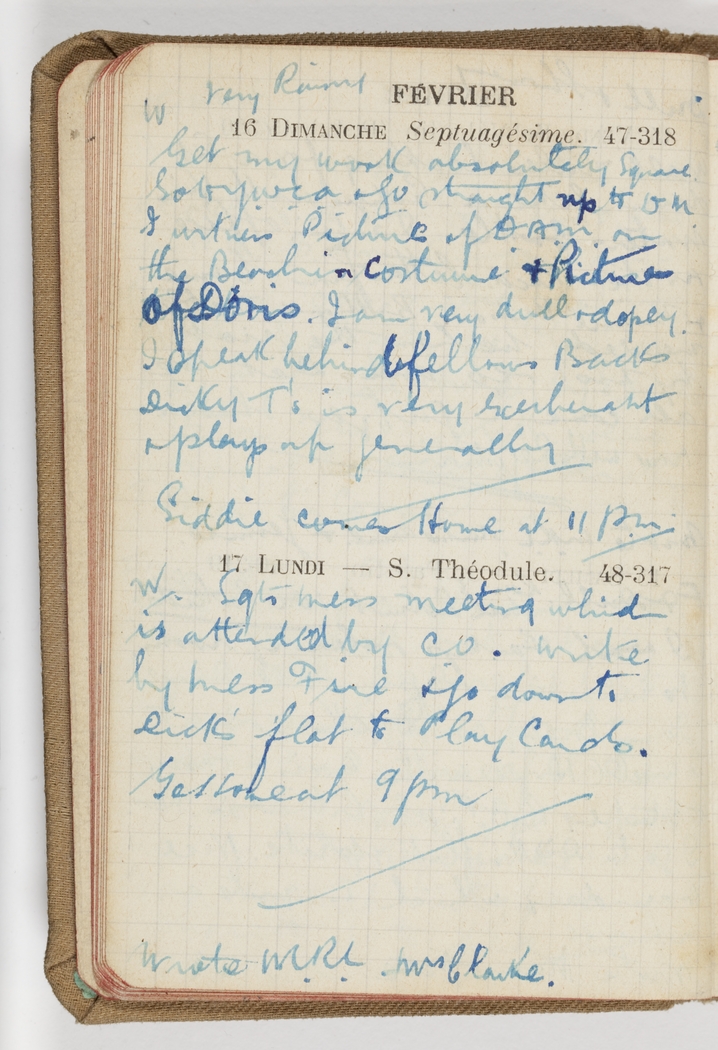 W Very Rainy
FÉVRIER
16 DIMANCHE Septuagésime. 47-318
Get my work absolutely Square.
Go to ymca & go straight up to
I witness Picture of on
the Beach in Costume & Picture
of Doris. I am very dull & dopey.
I speak behind fellows Backs
Dicky T's is very exuberant
& plays up generally
Giddie comes Home at 11 p.m.
17 LUNDI — S. Théodule. 48-317
W. Sgts mess meeting which
is attended by CO. write
by mess Fire & go down to
Dick's flat to Play Cards.
Get home at 9 pm
Wrote M.R.L. Mrs Clarke.